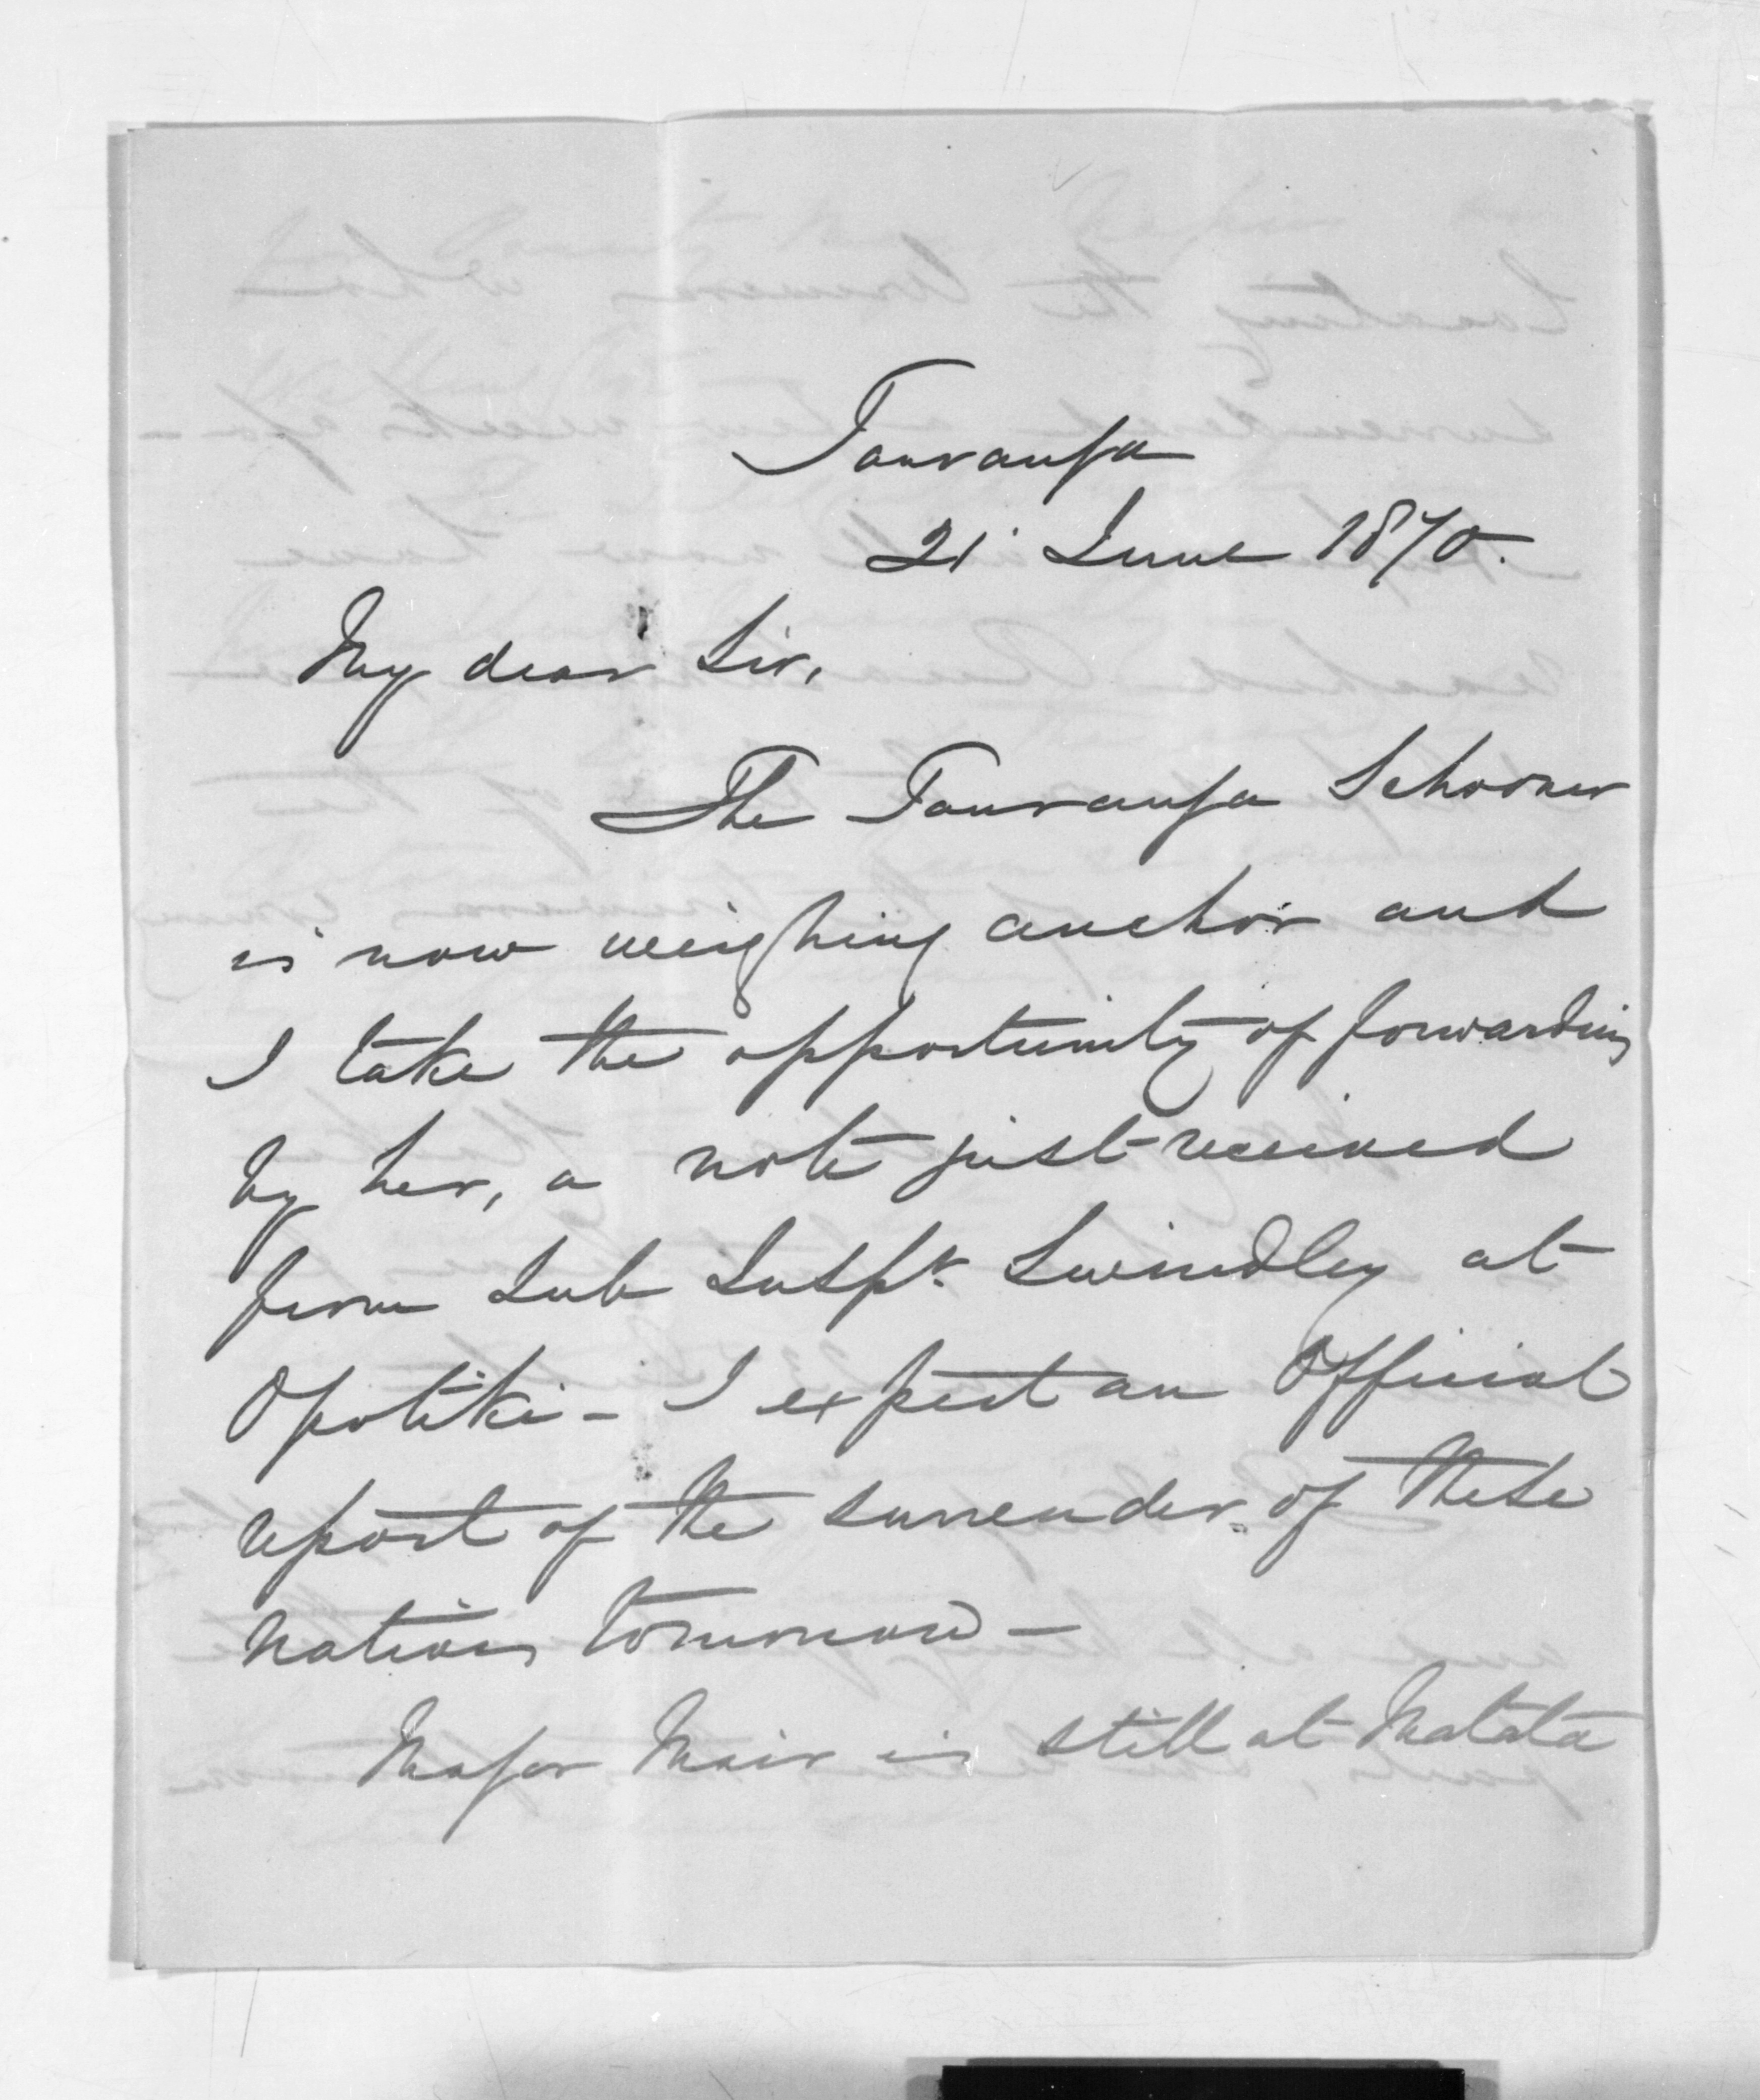 Tauranga
21 June 1870.
My dear Sir,
The Tauranga Schooner
is now weighing anchor and
I take the opportunity of forwarding
by her, a note just received
from Sub Inspr. Swindley at
Opotiki - I expect an Official
report of the surrender of these
natives tomorrow -
Major Mair is still at Matata